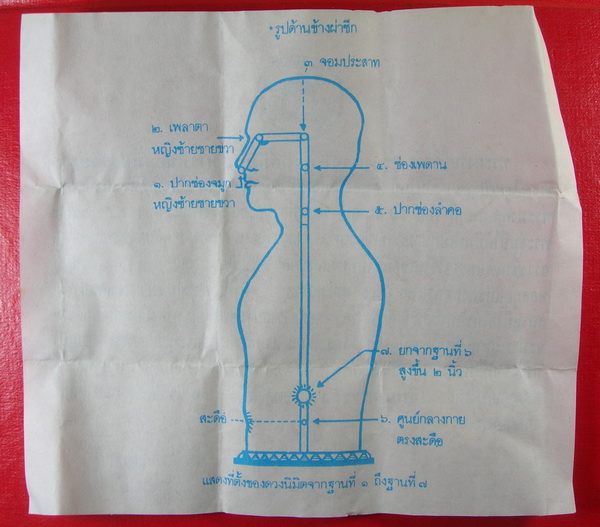 *รูปด้านข้างผ่าซีก
๓ จอมประสาท
๒. เพลาตา
หญิงซ้ายชายขวา
๑. ปากช่องจมูก
หญิงซ้ายชายขวา
๔. ช่องเพดาน
๕. ปากช่องลำคอ
๗. ยกจากฐานที่ ๖
สูงขึ้น ๒ นิ้ว
สะดือ
๖. ศูนย์กลางกาย
ตรงสะดือ
แสดงที่ตั้งของดวงนิมิตจากฐานที่ ๑ ถึงฐานที่ ๗